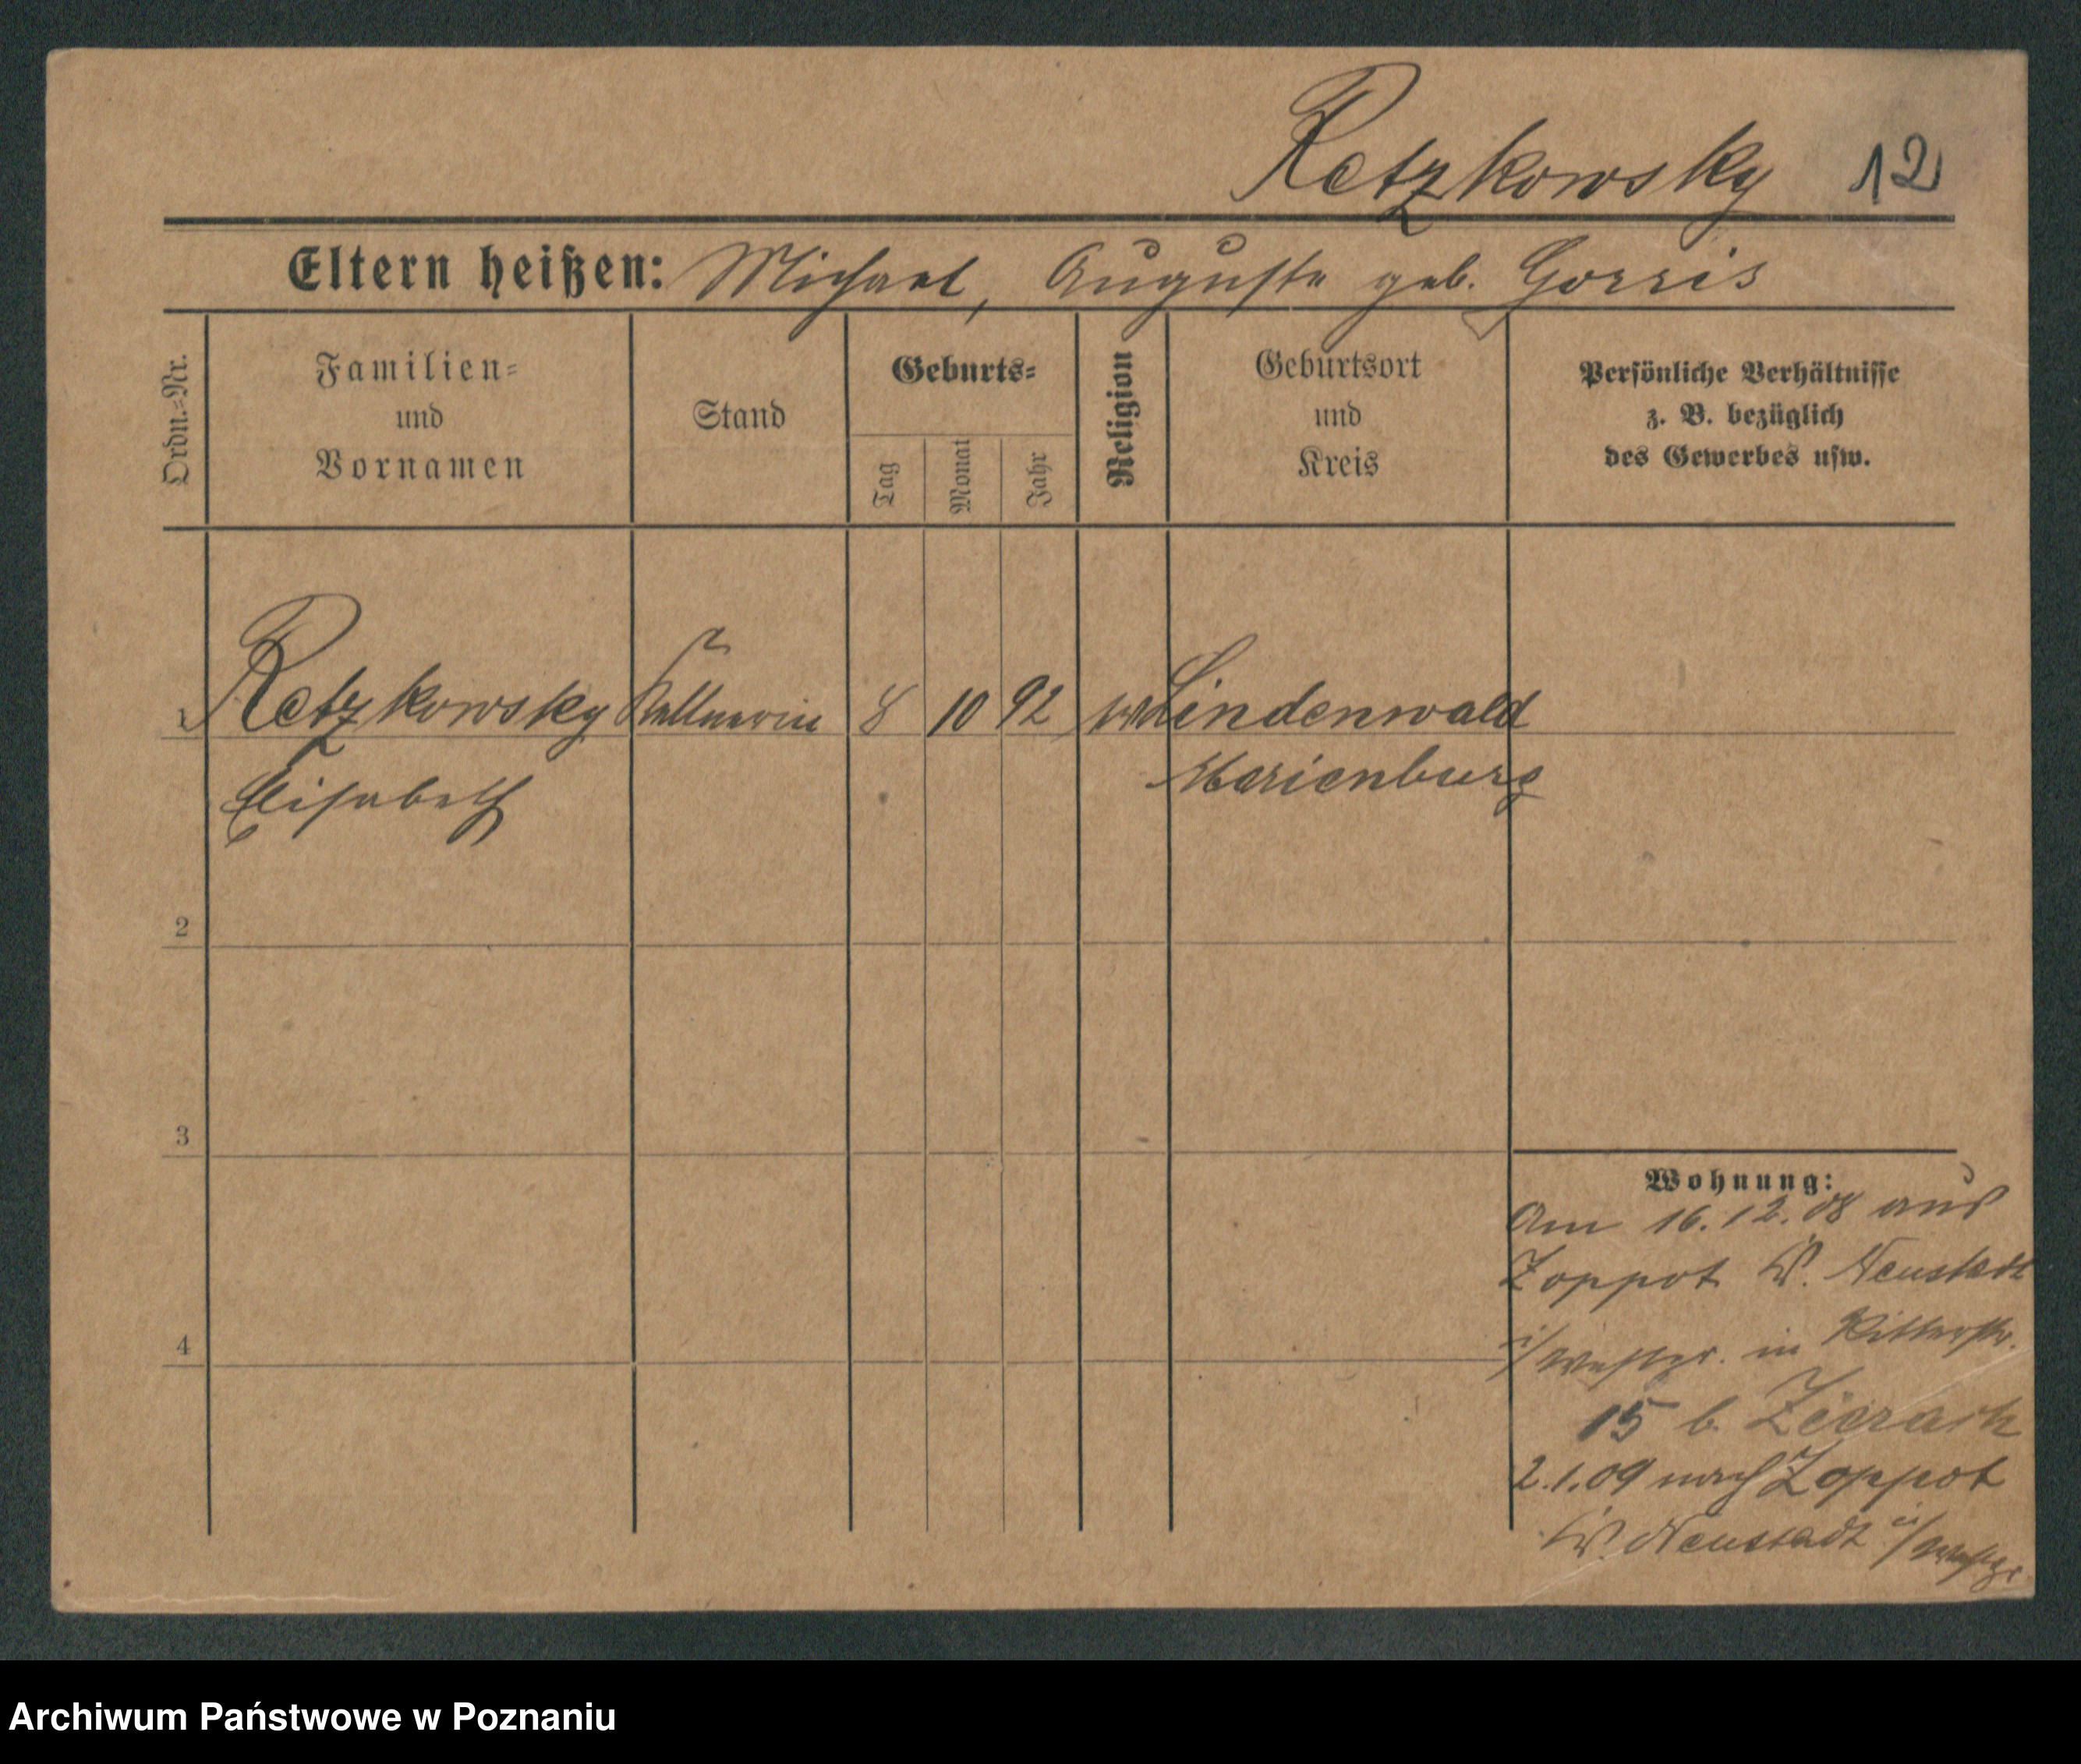 Retzkowsky 12
Eltern heißen: Michael, Auguste geb. Gorris
Ordn.=Nr.
Familien=
und
Vornamen
Stand
Geburts=
Tag
Monat
Jahr
Religion
Geburtsort
und
Kreis
Persönliche Verhältnisse
z. B. bezüglich
des Gewerbes usw.
1 Retzkowsky Kellnerin 8 10 92 Lindenwald
Elisabeth Marienburg
2
3
4
Wohnung:
Am 16.12.08 aus
Zoppot Neustadt
i/Westpr. in Ritterstr.
15 b.
2.1.09 nach Zoppot
Neustadt i/Westpr
Archiwum Państwowe w Poznaniu